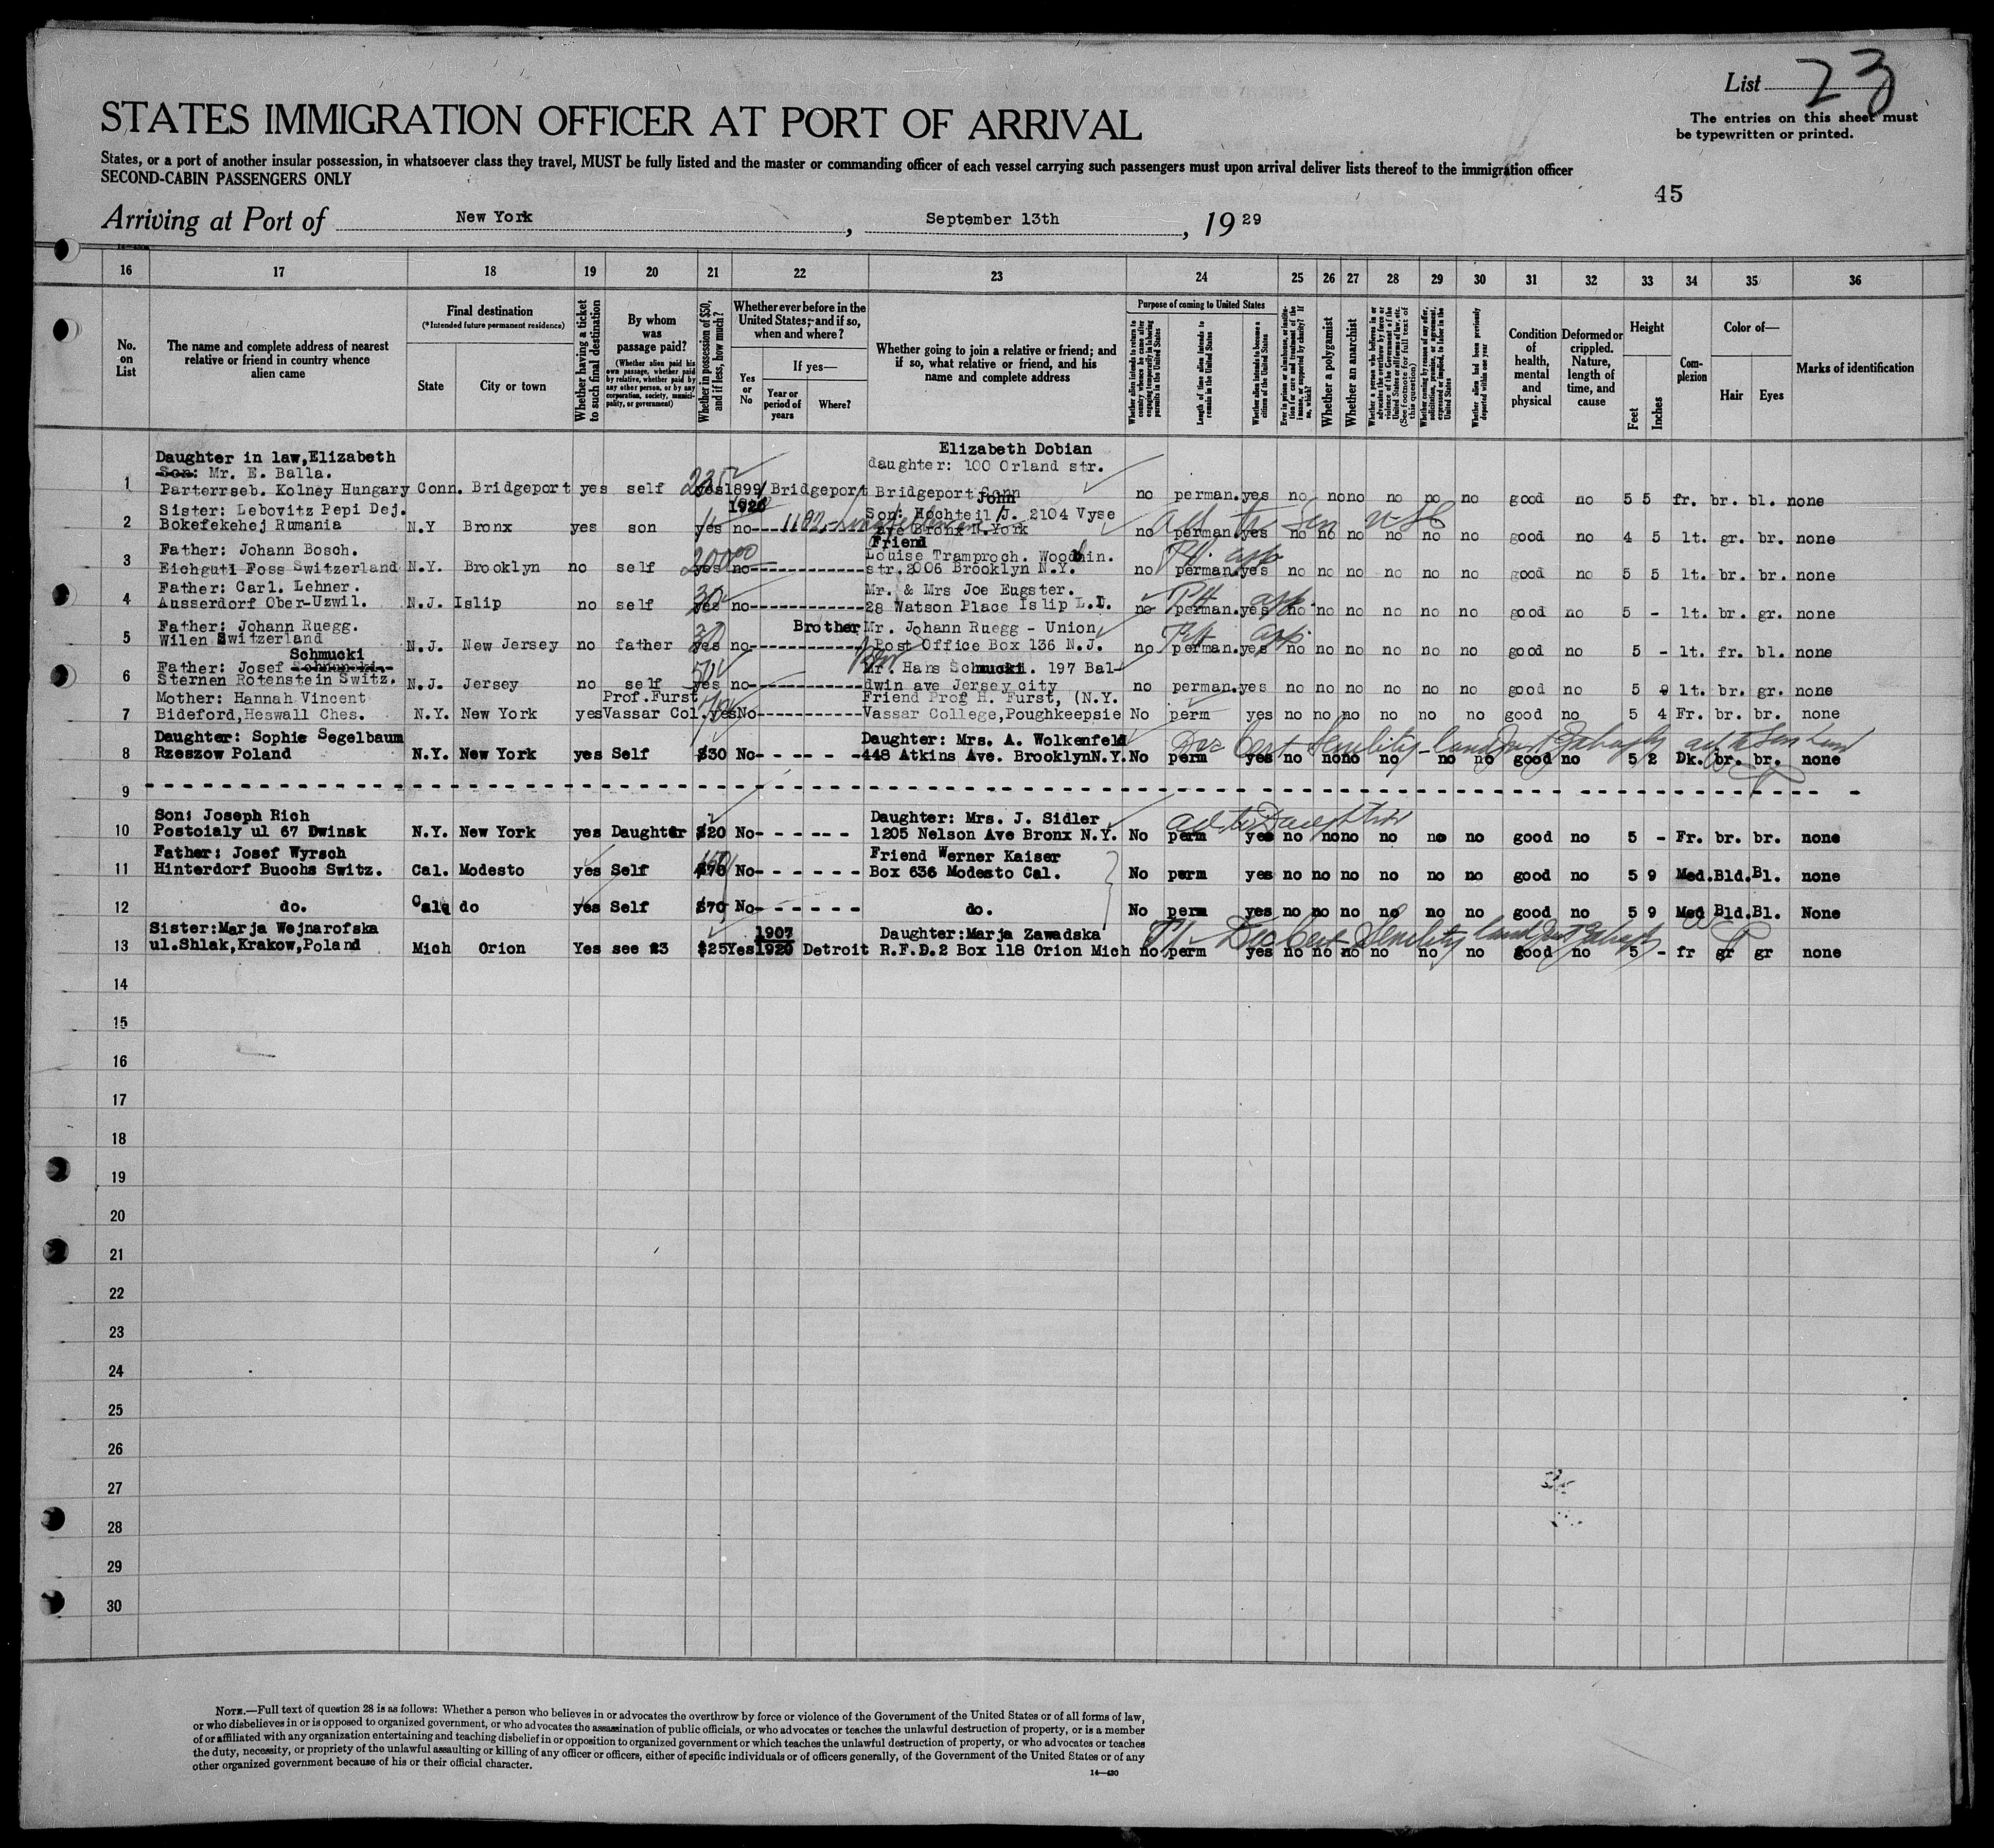 List 23
The entries on this sheet must
be typewritten or printed.
STATES IMMIGRATION OFFICER AT PORT OF ARRIVAL
States, or a port of another insular possession, in whatsoever class they travel, MUST be fully listed and the master or commanding officer of each vessel carrying such passengers must upon arrival deliver lists thereof to the immigration officer
SECOND-CABIN PASSENGERS ONLY
45
Arriving at Port of New York, September 13th, 1929
16 17 18 19 20 21 22 23 24 25 26 27 28 29 30 31 32 33 34 35 36
No. on List
The name and complete address of nearest relative or friend in country whence alien came
Final destination
(*Intended future permanent residence)
State
City or town
Whether having a ticket to such final destination
By whom was passage paid?
(Whether alien paid his own passage, whether paid by relative, whether paid by any other person, or by any corporation, society, municipality, or government)
Whether in possession of $50, and if less, how much?
Whether ever before in the United States; and if so, when and where?
Yes or No
If yes—
Year or period of years
Where?
Whether going to join a relative or friend; and if so, what relative or friend, and his name and complete address
Purpose of coming to United States
Whether alien intends to return to country whence he came after engaging temporarily in laboring pursuits in the United States
Length of time alien intends to remain in the United States
Whether alien intends to become a citizen of the United States
Ever in prison or almshouse, or institution for care and treatment of the insane, or supported by charity? If so, which?
Whether a polygamist
Whether an anarchist
Whether coming by reason of any offer, solicitation, promise, or agreement, expressed or implied, to labor in the United States
Whether alien had been previously deported within one year
Condition of health, mental and physical
Deformed or crippled. Nature, length of time, and cause
Height
Feet
Inches
Complexion
Color of—
Hair
Eyes
Marks of identification
Daughter in law, Elizabeth Elizabeth Dobian
Son: Mr. E. Balla. daughter: 100 Orland str.
1 Parterrseb. Kolney Hungary Conn. Bridgeport yes self yes 1899/1920 Bridgeport Bridgeport Conn no perman. yes no no no no no no good no 5 5 fr. br. bl. none
Sister: Lebovitz Pepi Dej. Son: Hechteil J. John 2104 Vyse
2 Bokefekehej Rumania N.Y Bronx yes son yes no ave Bronx N.York no perman. yes no no no no no no good no 4 5 lt. gr. br. none
Father: Johann Bosch. Friend Louise Tramproch. Woodbin.
3 Eichguti Foss Switzerland N.Y. Brooklyn no self 200.00 yes no str. 2006 Brooklyn N.Y. no perman. yes no no no no no no good no 5 5 lt. br. br. none
Father: Carl. Lehner. Mr. & Mrs Joe Eugster.
4 Ausserdorf Ober-Uzwil. N.J. Islip no self 30 yes no 28 Watson Place Islip L.I. no perman. yes no no no no no no good no 5 - lt. br. gr. none
Father: Johann Ruegg. Brother Mr. Johann Ruegg - Union
5 Wilen Switzerland N.J. New Jersey no father 30 yes no Post Office Box 136 N.J. no perman. yes no no no no no no good no 5 - lt. fr. bl. none
Schmucki
Father: Josef Mr. Hans Schmucki. 197 Bal-
6 Sternen Rotenstein Switz. N.J. Jersey no self 50 yes no dwin ave Jersey city no perman. yes no no no no no no good no 5 9 lt. br. gr. none
Mother: Hannah Vincent Prof. Furst Friend Prof H. Furst, (N.Y.
7 Bideford, Heswall Ches. N.Y. New York yes Vassar Col. yes No Vassar College, Poughkeepsie No perm yes no no no no no no good no 5 4 Fr. br. br. none
Daughter: Sophie Segelbaum Daughter: Mrs. A. Wolkenfeld
8 Rzeszow Poland N.Y. New York yes Self $30 No - - - - - 448 Atkins Ave. Brooklyn N.Y. No perm yes no no no no no no good no 5 2 Dk. br. br. none
9
Son: Joseph Rich Daughter: Mrs. J. Sidler ad to Daughter
10 Postoialy ul 67 Dwinsk N.Y. New York yes Daughter $20 No - - - - - 1205 Nelson Ave Bronx N.Y. No perm yes no no no no no no good no 5 - Fr. br. br. none
Father: Josef Wyrsch Friend Werner Kaiser
11 Hinterdorf Buochs Switz. Cal. Modesto yes Self $70 No - - - - - - Box 636 Modesto Cal. No perm yes no no no no no no good no 5 9 Med. Bld. Bl. none
12 do. Cal do yes Self $70 No - - - - - - do. No perm yes no no no no no no good no 5 9 Med Bld. Bl. None
Sister: Marja Wejnarofska 1907 Daughter: Marja Zawadska
13 ul. Shlak, Krakow, Poland Mich Orion Yes see 23 $25 Yes 1920 Detroit R.F.D. 2 Box 118 Orion Mich no perm yes no no no no no no good no 5 - fr gr gr none
14
15
16
17
18
19
20
21
22
23
24
25
26
27
28
29
30
NOTE.—Full text of question 28 is as follows: Whether a person who believes in or advocates the overthrow by force or violence of the Government of the United States or of all forms of law,
or who disbelieves in or is opposed to organized government, or who advocates the assassination of public officials, or who advocates or teaches the unlawful destruction of property, or is a member
of or affiliated with any organization entertaining and teaching disbelief in or opposition to organized government or which teaches the unlawful destruction of property, or who advocates or teaches
the duty, necessity, or propriety of the unlawful assaulting or killing of any officer or officers, either of specific individuals or of officers generally, of the Government of the United States or of any
other organized government because of his or their official character.
14—430